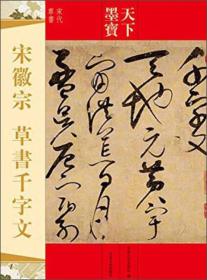 天下
墨寶
宋代
草書
宋徽宗 草書千字文
千字文
天地元黃宇
宙洪荒日月
盈昃辰宿列